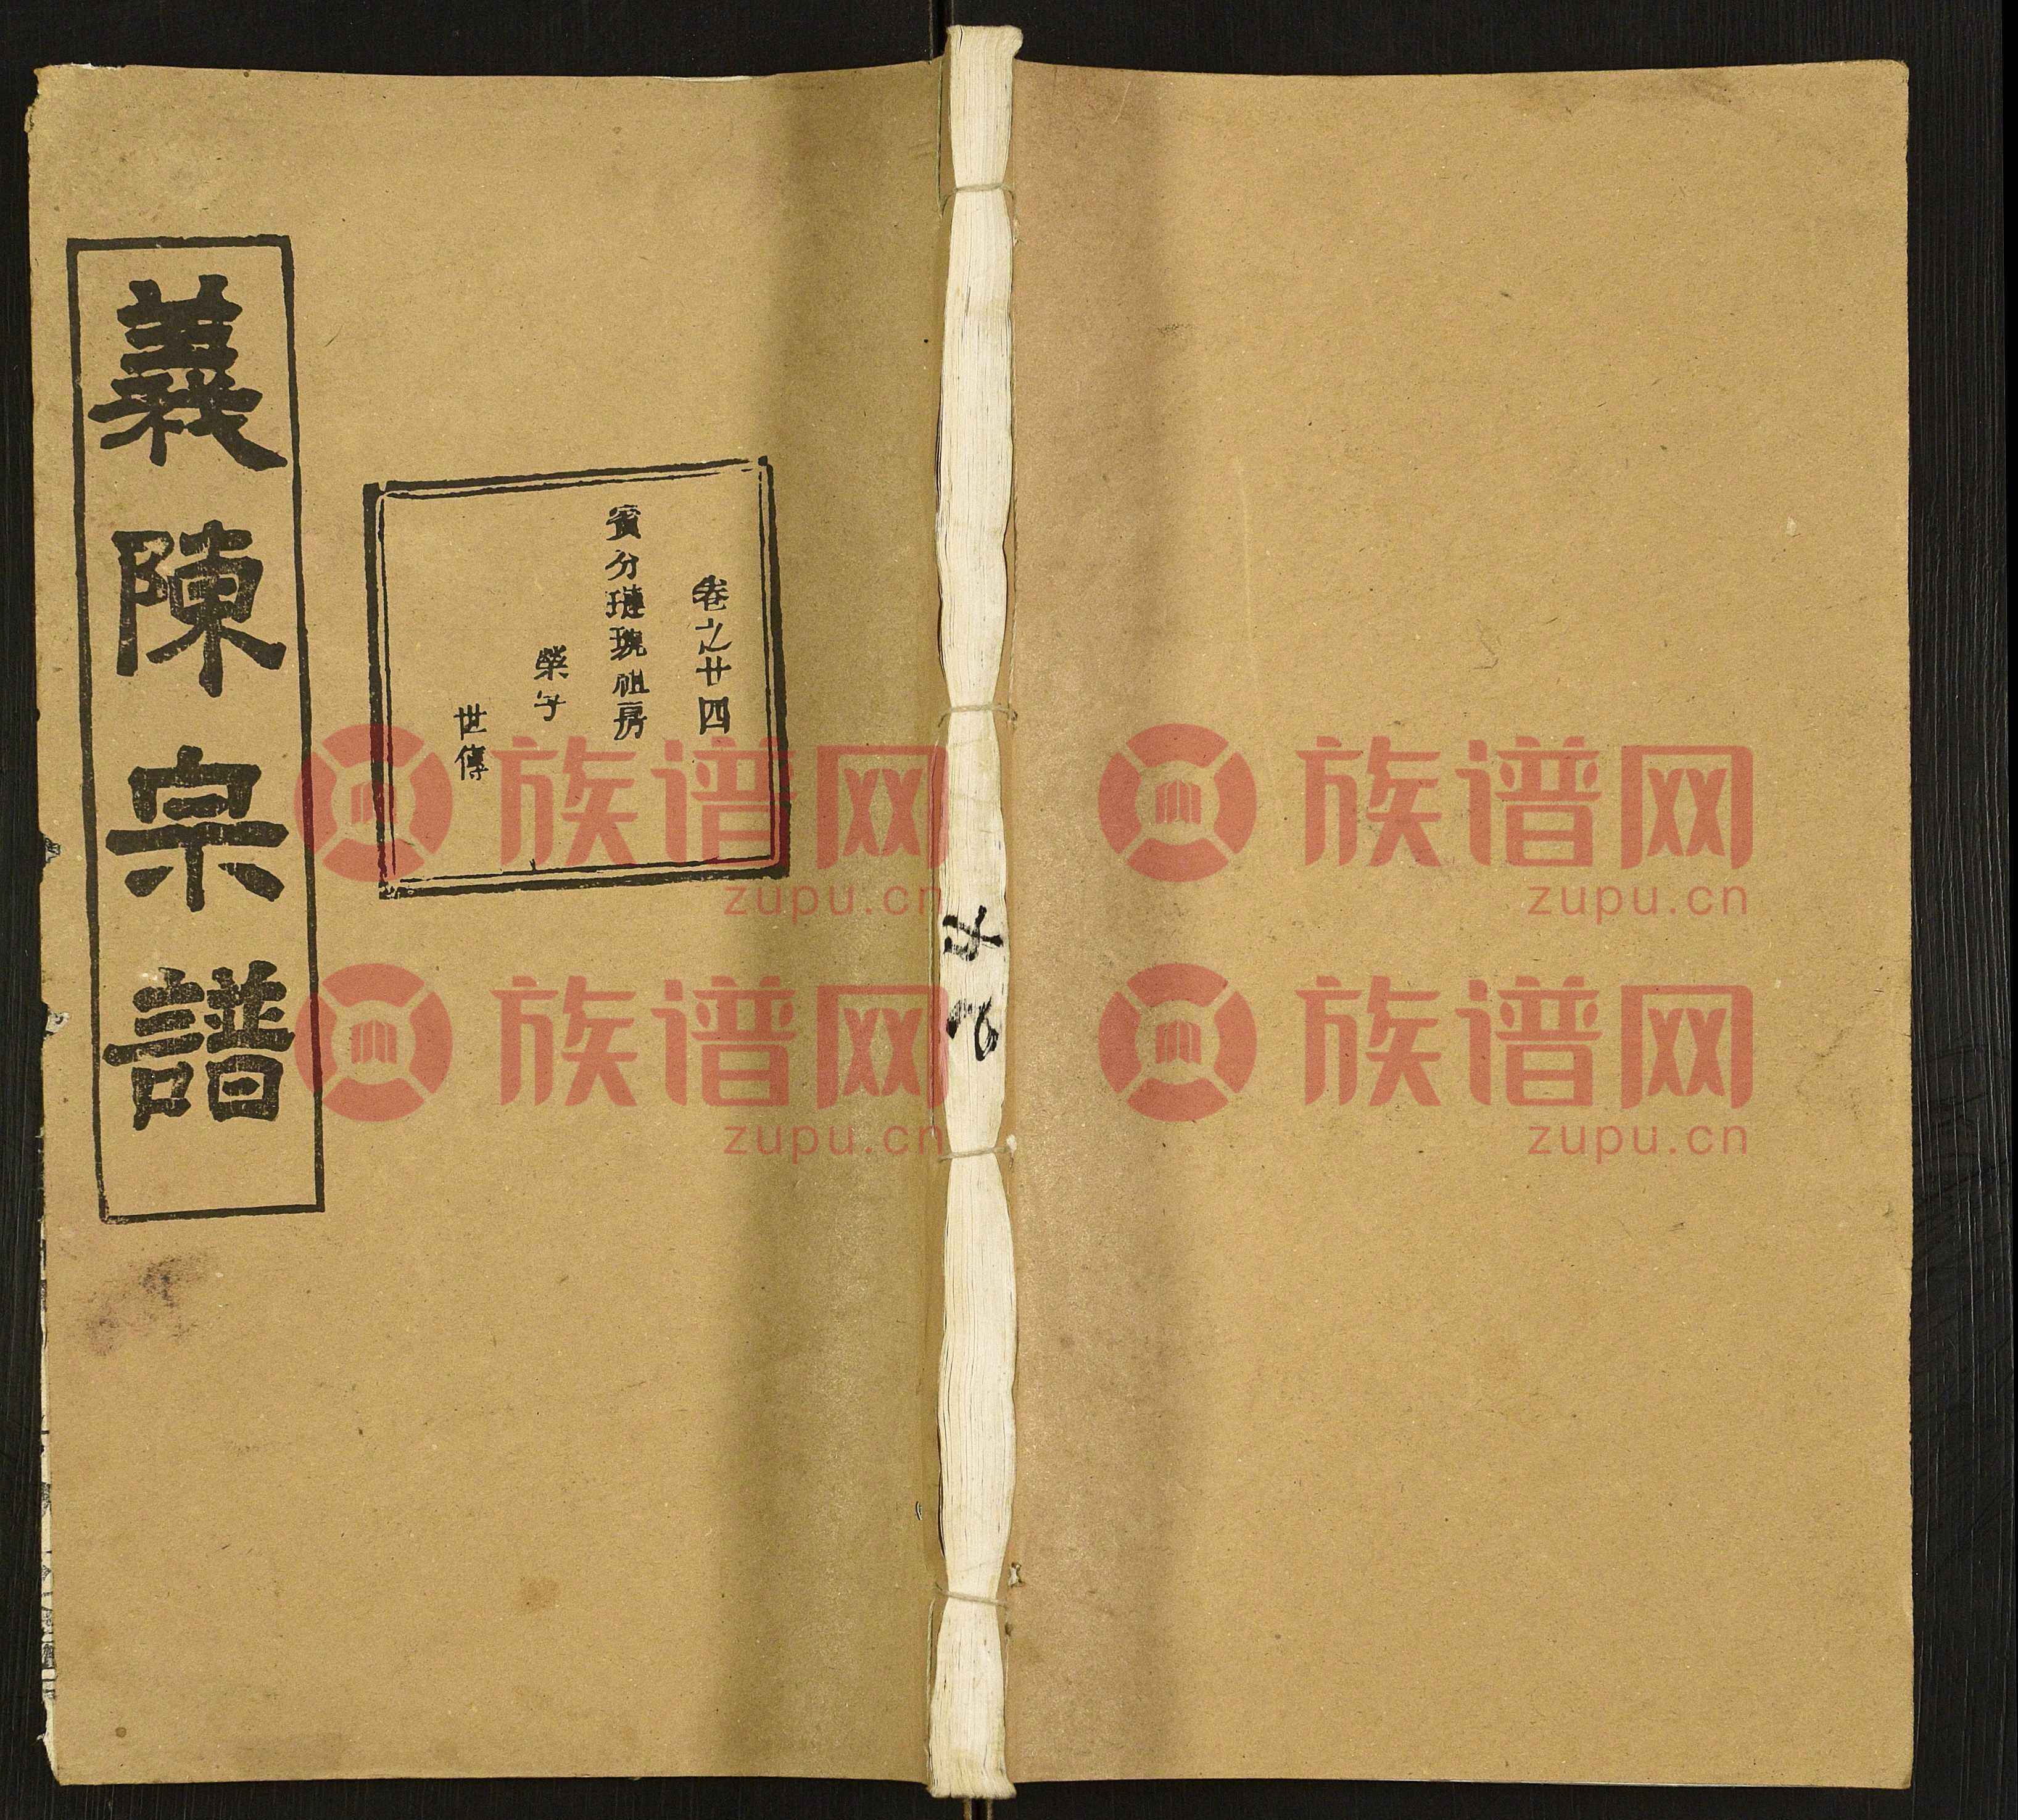 義陳宗譜
卷之廿四
賓分璉琬祖房
榮字
世傳
族谱网
zupu.cn
族谱网
zupu.cn
族谱网
zupu.cn
族谱网
zupu.cn